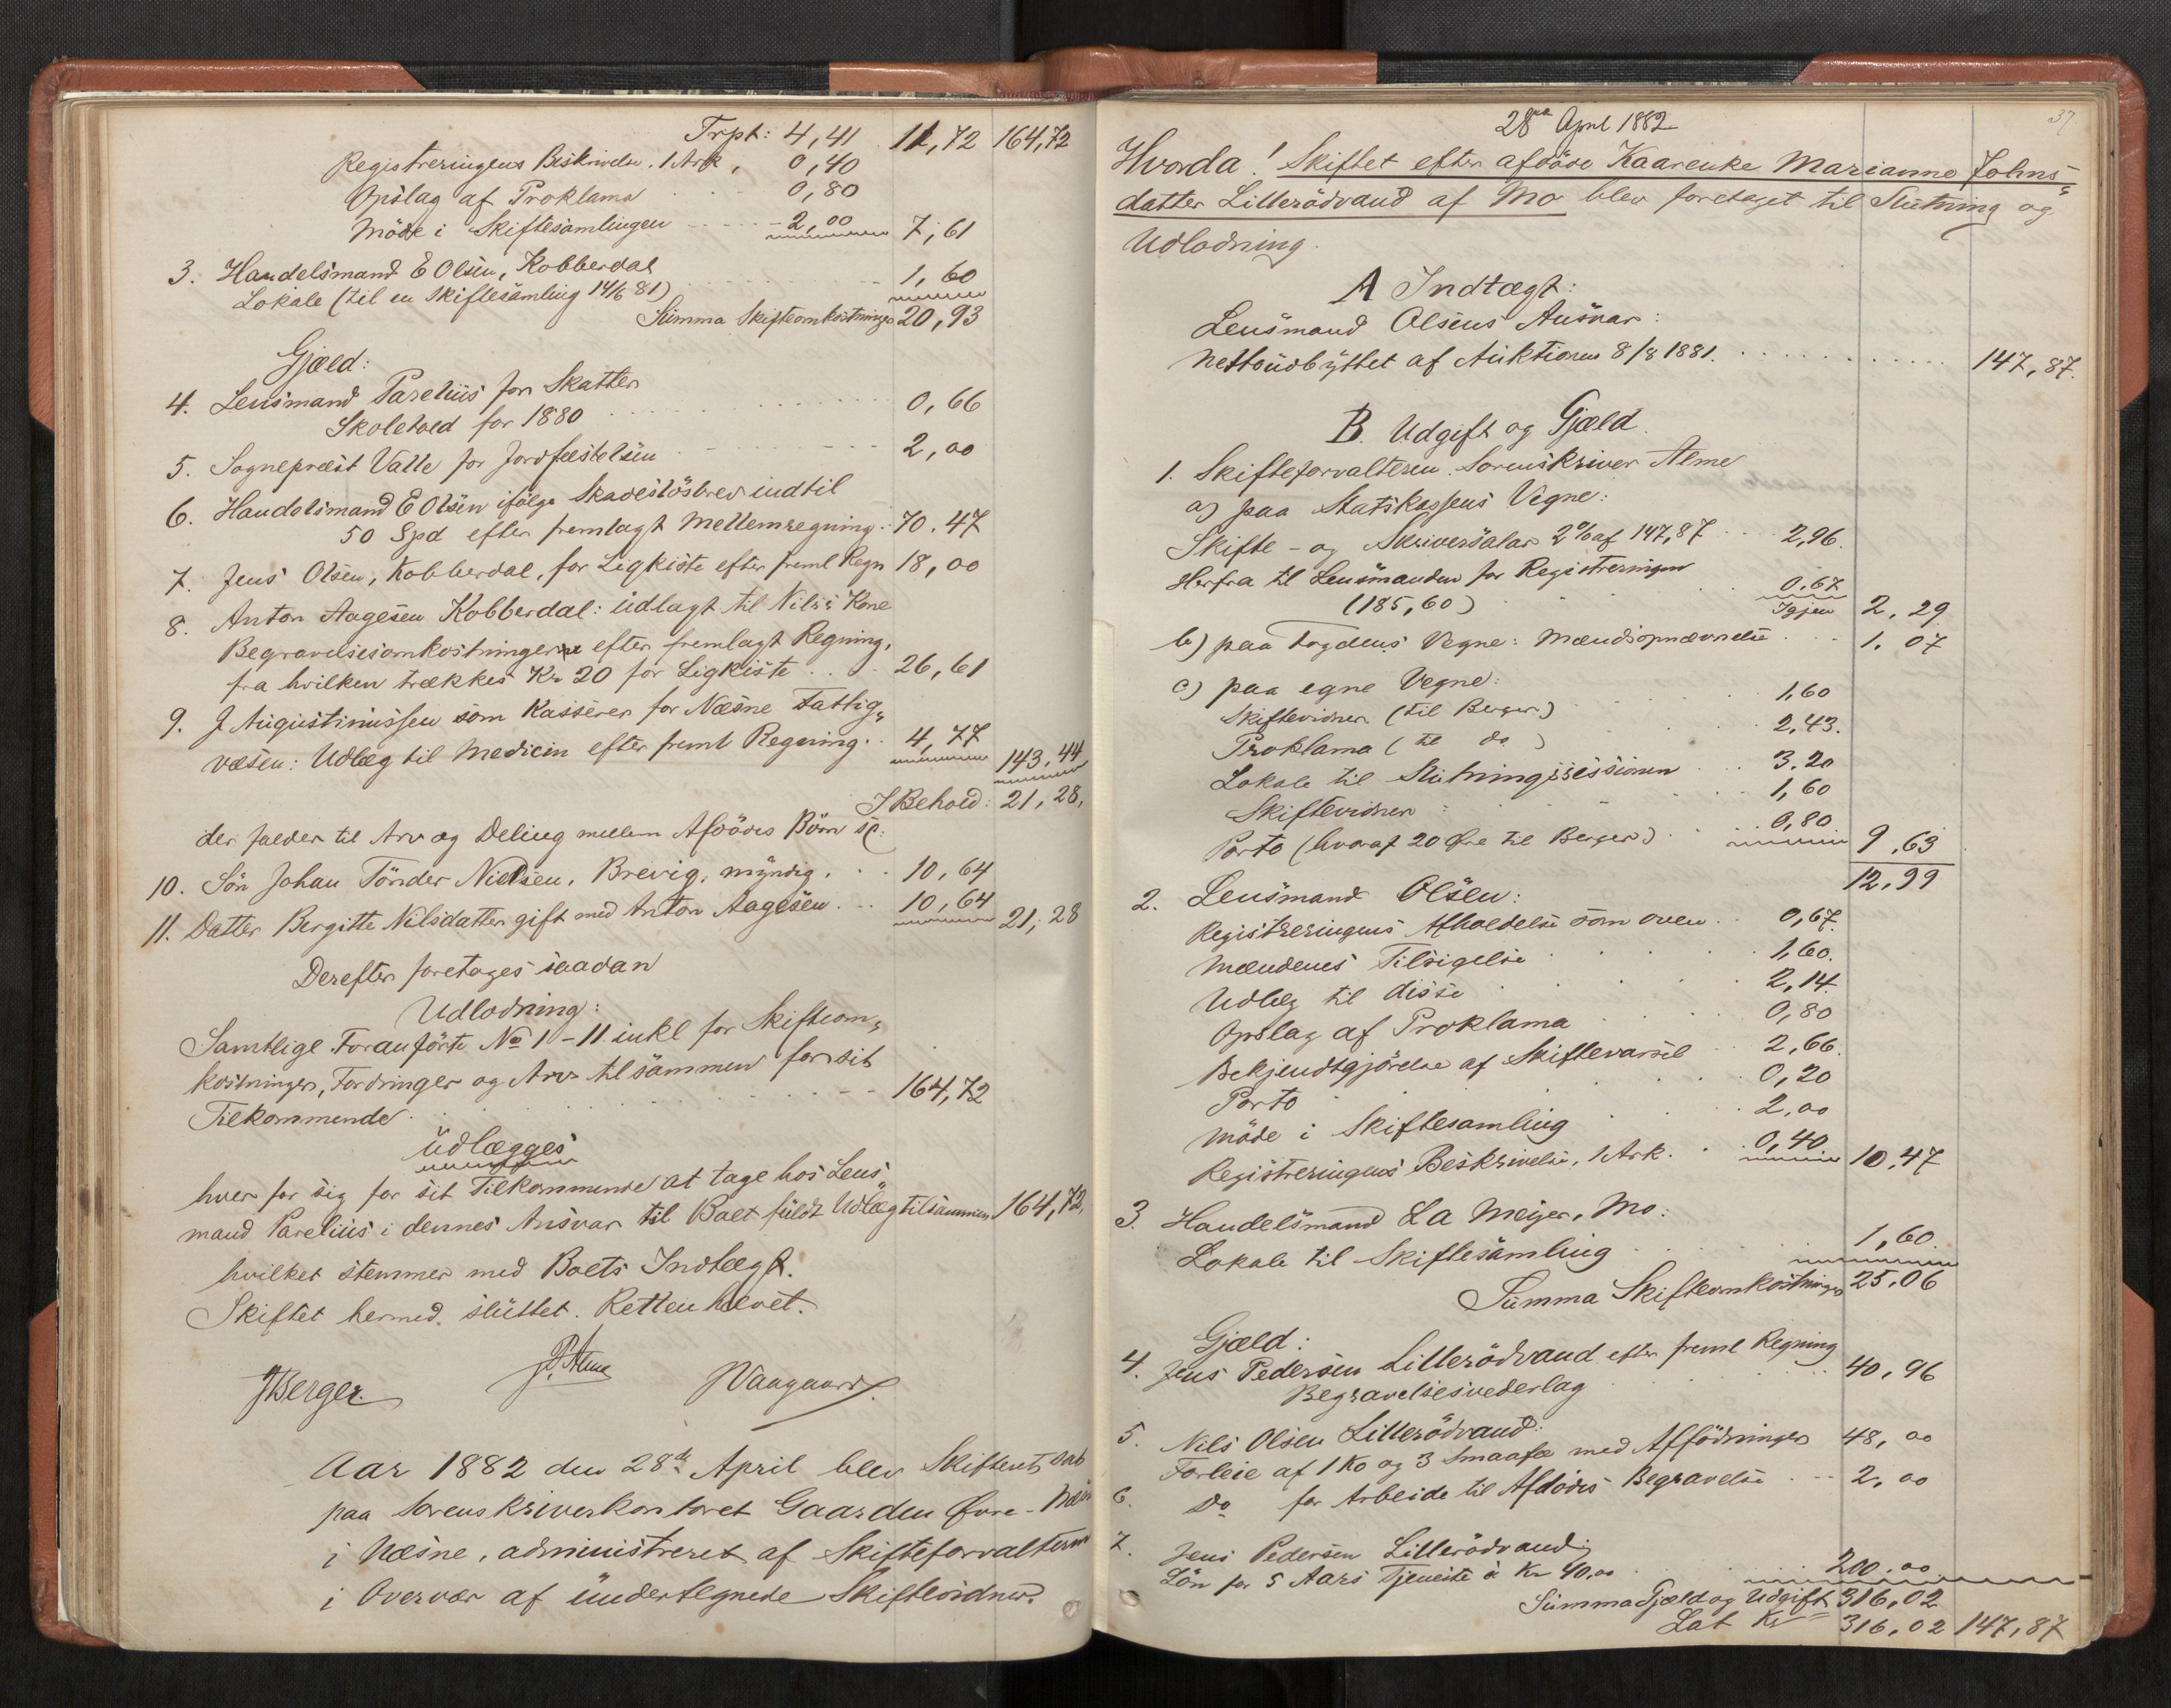 Trpt: 4,41 11,72 164,72
Registreringens Beskrivelse. 1 Ark, 0,40
Opslag af Proklama 0,80
Möde i Skiftesamlingen 2,00 7,61
3. Handelsmand E Olsen, Kobberdal
Lokale (til en Skiftesamling 14/6 81) 1,60
Summa Skifteomkostninger 20,93
Gjæld:
4. Lensmand Parelius for Skatter
Skoletold for 1880 0,66
5. Sogneprest Valle for Jordfæstelsen 2,00
6. Handelsmand E Olsen ifölge Skadeslösbrev indtil
50 Spd efter fremlagt Mellemregning 70.47
7. Jens Olsen, Kobberdal, for Ligkiste efter freml Regn 18,00
8. Anton Aagesen Kobberdal: Udlagt til Nils's Kone
Begravelsesomkostningerne efter fremlagt Regning,
fra hvilken trækkes Kr 20 for Ligkiste 26,61
9. J Augustinussen som Kasserer for Næsne Fattig„
væsen: Udlæg til Medicin efter freml Regning 4,77 143,44
I Behold: 21,28,
der falder til Arv og Deling mellem Afdödes Börn sc:
10. Sön Johan Tönder Nielsen, Brevig, myndig, 10,64
11. Datter Bergitte Nilsdatter gift med Anton Aagesen 10,64 21,28
Derefter foretages saadan
Udlodning:
Samtlige Foranförte No 1-11 inkl for Skifteom„
kostninger, Fordringer og Arv tilsammen for sit
Tilkommende 164,72
udlægges
hver for sig for sit Tilkommende at tage hos Lens„
mand Parelius i dennes Ansvar til Boet fuldt Udlæg tilsammen 164,72,
hvilket stemmer med Boets Indtægt.
Skiftet hermed sluttet. Retten hævet.
JBerger. P. Alme Waagaard
Aar 1882 den 28de April blev Skifteret sat
paa Sorenskriverkontoret Gaarden Øvre-
i Næsne, administreret af Skifteforvalteren
i Overvær af undertegnede Skiftevidner.
37
28de April 1882
Hvorda! Skiftet efter afdöde Kaarenke Marianne Johns„
datter Lillerödvand af Mo blev foretaget til Slutning og
Udlodning.
A Indtægt:
Lensmand Olsens Ansvar:
Nettoudbyttet af Auktionen 8/8 1881. 147,87.
B. Udgift og Gjæld
1. Skifteforvalteren Sorenskriver Alme
a) paa Statskassens Vegne:
Skifte- og Skriversalar 2% af 147,87 2,96.
Herfra til Lensmanden for Registreringen
(185,60) 0,67
Igjen 2,29
b) paa Fogdens Vegne: Mændsopnævnelse 1.07
c) paa egne Vegne:
Skiftevidner (til Berger) 1,60
Proklama (til do ) 2,43.
Lokale til Slutningssessionen 3.20
Skiftevidner 1,60
Porto (hvoraf 20 Øre til Berger) 0,80 9,63
12,99
2. Lensmand Olsen:
Registreringens Afholdelse som oven 0,67.
Mændenes Tilsigelse 1,60.
Udlæg til disse 2,14.
Opslag af Proklama 0,80
Bekjendtgjörelse af Skiftevarsel 2,66.
Porto 0,20
Möde i Skiftesamling 2,00
Registreringens Beskrivelse, 1 Ark. 0,40 10,47
3. Handelsmand L A Meyer, Mo:
Lokale til Skiftesamling 1,60
Summa Skifteomkostninger 25,06
Gjæld:
4. Jens Pedersen Lillerödvand efter freml Regning
Begravelsesvederlag 40,96
5. Nils Olsen Lillerödvand:
Forleie af 1 Ko og 3 Smaafæ med Affödninger 48,00
6. Do for Arbeide til Afdödes Begravelse 2,00
7. Jens Pedersen Lillerödvand;
Lön for 5 Aars Tjeneste à Kr 40,00 200,00
Summa Gjæld og Udgift 316,02
Lat Kr 316,02 147,87